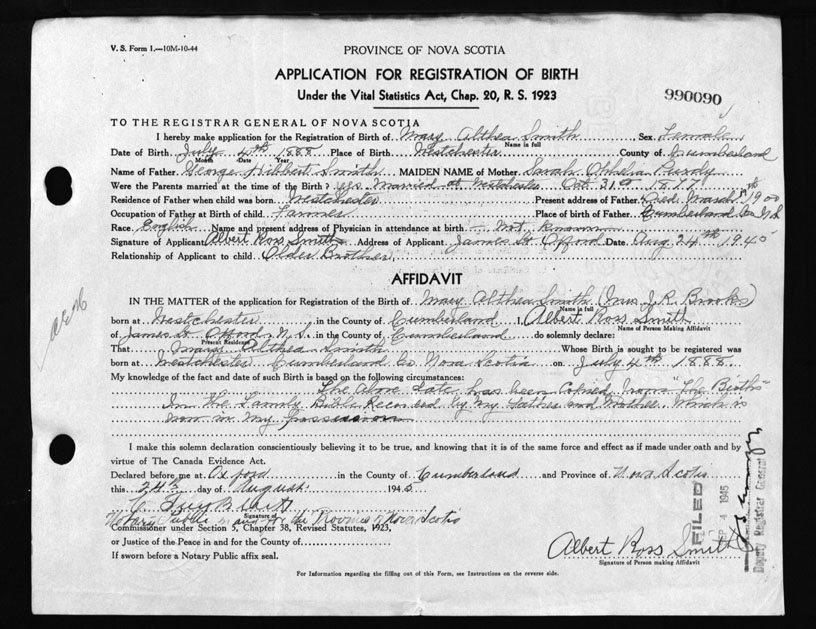 V. S. Form 1.—10M-10-44
PROVINCE OF NOVA SCOTIA
APPLICATION FOR REGISTRATION OF BIRTH
Under the Vital Statistics Act, Chap. 20, R. S. 1923
990090
TO THE REGISTRAR GENERAL OF NOVA SCOTIA
I hereby make application for the Registration of Birth of Mary Althea Smith, Sex Female
Name in full
Date of Birth July 4th 1888 Place of Birth Westchester County of Cumberland
Month Date Year
Name of Father George Hibbert Smith MAIDEN NAME of Mother Sarah Ophelia Purdy
Were the Parents married at the time of the Birth? yes. Married at Westchester Oct 31st 1877
Residence of Father when child was born Westchester Present address of Father Died March 1900
Occupation of Father at Birth of child Farmer Place of birth of Father Cumberland Co N.S.
Race English Name and present address of Physician in attendance at birth Not Known
Signature of Applicant Albert Ross Smith Address of Applicant James St Oxford Date Aug 24th 1945
Relationship of Applicant to child Older Brother
AFFIDAVIT
IN THE MATTER of the application for Registration of the Birth of Mary Althea Smith (Mrs J. R. Brooks)
Name in full
born at Westchester in the County of Cumberland I, Albert Ross Smith
Name of Person Making Affidavit
of James St Oxford, N.S. in the County of Cumberland do solemnly declare:
Present Residence
That Mary Althea Smith Whose Birth is sought to be registered was
born at Westchester Cumberland Co Nova Scotia on July 4th 1888.
My knowledge of the fact and date of such Birth is based on the following circumstances:
The above Date has been Copied from "The Births"
In the Family Bible Recorded by my Father and Mother. Which is
now in my possession
I make this solemn declaration conscientiously believing it to be true, and knowing that it is of the same force and effect as if made under oath and by
virtue of The Canada Evidence Act.
Declared before me at Oxford in the County of Cumberland and Province of Nova Scotia
this 24th day of August 1945
Signature of
Notary Public in and for the Province of Nova Scotia
Commissioner under Section 5, Chapter 38, Revised Statutes, 1923,
or Justice of the Peace in and for the County of
If sworn before a Notary Public affix seal.
Albert Ross Smith
Signature of Person making Affidavit
For Information regarding the filling out of this Form, see Instructions on the reverse side.
FILED
SEP 4 1945
Deputy Registrar General